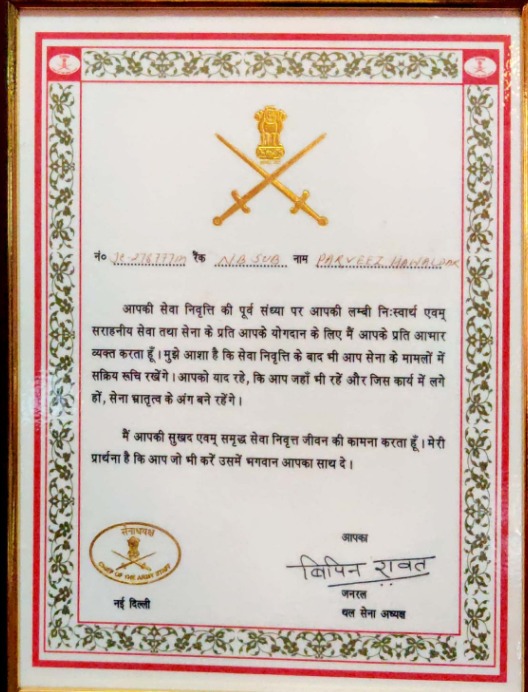 नं० JC-276777M रैंक NB SUB नाम PARVEEZ HAWALDAR
आपकी सेवा निवृत्ति की पूर्व संध्या पर आपकी लम्बी निःस्वार्थ एवम्
सराहनीय सेवा तथा सेना के प्रति आपके योगदान के लिए मैं आपके प्रति आभार
व्यक्त करता हूँ। मुझे आशा है कि सेवा निवृत्ति के बाद भी आप सेना के मामलों में
सक्रिय रूचि रखेंगे। आपको याद रहे, कि आप जहाँ भी रहें और जिस कार्य में लगे
हों, सेना भ्रातृत्व के अंग बने रहेंगे।
मैं आपकी सुखद एवम् समृद्ध सेवा निवृत्त जीवन की कामना करता हूँ। मेरी
प्रार्थना है कि आप जो भी करें उसमें भगवान आपका साथ दे।
सेनाध्यक्ष
CHIEF OF THE ARMY STAFF
नई दिल्ली
आपका
बिपिन रावत
जनरल
थल सेना अध्यक्ष